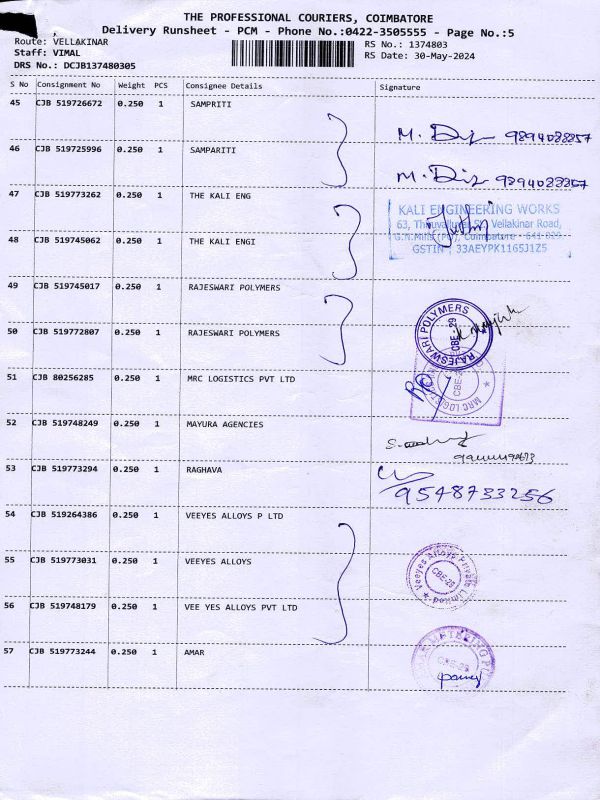 THE PROFESSIONAL COURIERS, COIMBATORE
Delivery Runsheet - PCM - Phone No.:0422-3505555 - Page No.:5
Route: VELLAKINAR
RS No.: 1374803
Staff: VIMAL
RS Date: 30-May-2024
DRS No.: DCJB137480305
S No Consignment No Weight PCS Consignee Details Signature
45 CJB 519726672 0.250 1 SAMPRITI
M. Dip 9894088857
46 CJB 519725996 0.250 1 SAMPARITI
M. Dip 9894088857
47 CJB 519773262 0.250 1 THE KALI ENG
KALI ENGINEERING WORKS
63, Thiruvalluvar St, Vellakinar Road,
G.N.Mills (PO), Coimbatore - 641 029
GSTIN : 33AEYPK1165J1Z5
48 CJB 519745062 0.250 1 THE KALI ENGI
49 CJB 519745017 0.250 1 RAJESWARI POLYMERS
RAJESWARI POLYMERS
CBE-29
50 CJB 519772807 0.250 1 RAJESWARI POLYMERS
51 CJB 80256285 0.250 1 MRC LOGISTICS PVT LTD
52 CJB 519748249 0.250 1 MAYURA AGENCIES
53 CJB 519773294 0.250 1 RAGHAVA
9548733256
54 CJB 519264386 0.250 1 VEEYES ALLOYS P LTD
55 CJB 519773031 0.250 1 VEEYES ALLOYS
Veeyes Alloys Private Limited
CBE-29
56 CJB 519748179 0.250 1 VEE YES ALLOYS PVT LTD
57 CJB 519773244 0.250 1 AMAR
CBE-29